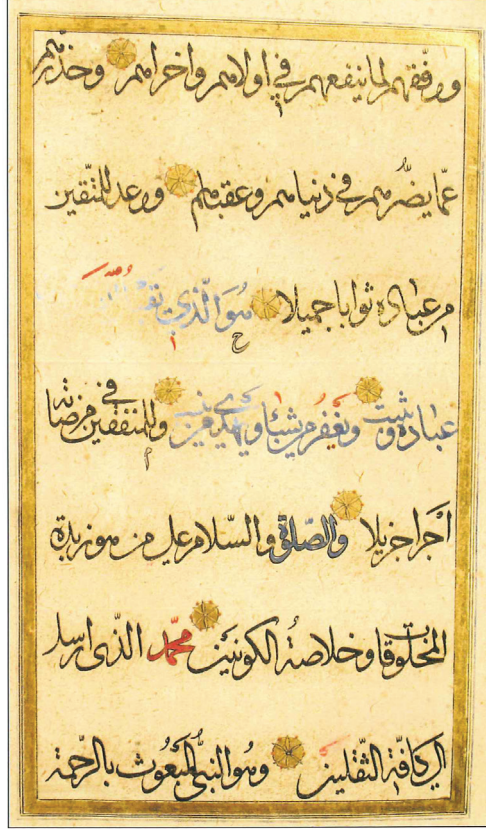 ووفّقهم لما ينفعهم في اولاهم واخراهم وحذّرهم
عمّا يضرّهم في دنياهم وعقباهم ووعد للمتّقين
من عباده ثوابا جميلا هو الّذي
عباده ويغفر من يشاء ويهدي وللمنفقين في مرضاته
اجرا جزيلا والصّلوة والسّلام على من هو زبدة
المخلوقات وخلاصة الكونين محمّد الّذي ارسل
الي كافّة الثّقلين وهو النبيّ المبعوث بالرّحمة